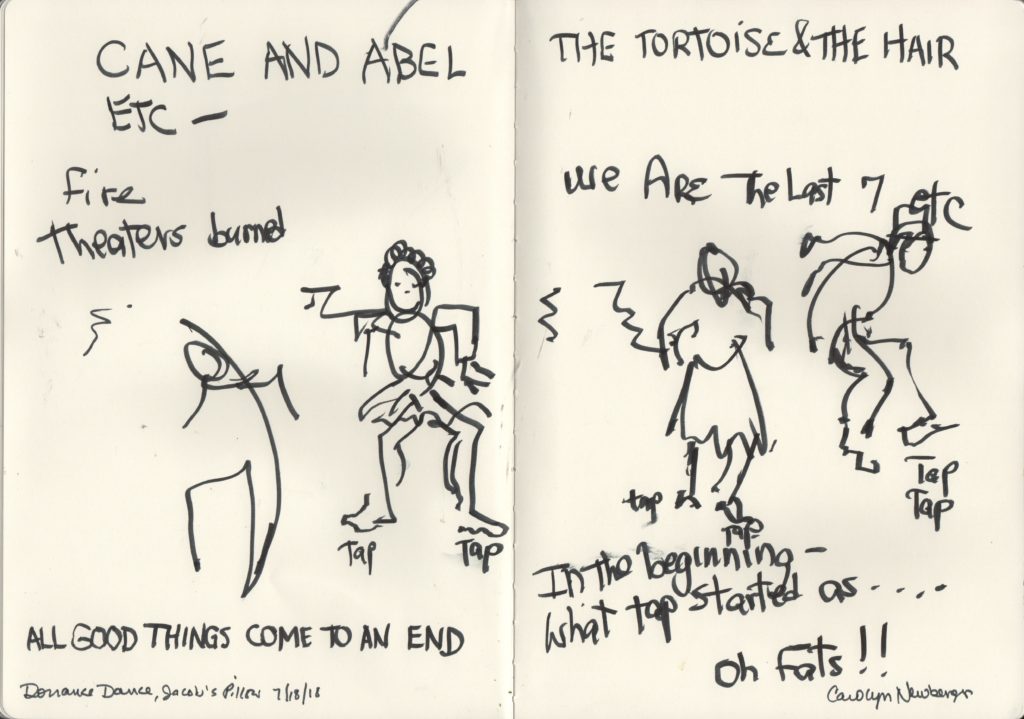 CANE AND ABEL
ETC —
Fire
Theaters burned
Tap
Tap
ALL GOOD THINGS COME TO AN END
Dorrance Dance, Jacob's Pillow 7/18/18
THE TORTOISE & THE HAIR
We ARE The Last 7 etc
tap
Tap
Tap
Tap
In the beginning –
what tap started as . . . . .
Oh Fats!!
Carolyn Newberger